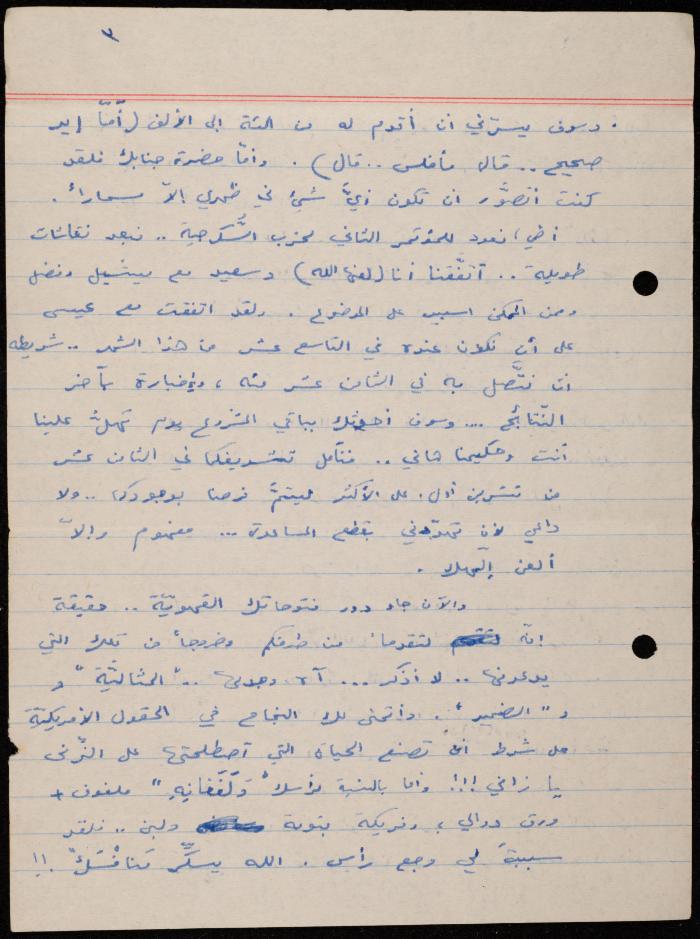 ٣
. وسوف يسترني ان أقدم له من المئة الى الألف (أمّا إيد
صحيح .. قال مأفلس .. قال) . وأمّا حضرة جنابك فلقد
كنت أتصوَّر ان تكون زيَّ شيْ في ظهري إلّا مسماراً .
أخي ، نعود للمؤتمر الثاني لحزب السّكرجية .. فبعد نقاشات
طويلة .. اتّفقنا أنا (لعنها الله) وسعيد مع ميشيل وفضل
ومن الممكن اسبير على الموضوع . ولقد اتفقت مع عيسى
على أن نكون عنده في التاسع عشر من هذا الشهر .. شريطه
ان نتَّصل به في الثامن عشر منه ، وإخبارة بآخر
النّتائج .... وسوف أحدثك بباقي المشروع يوم تهلُّ علينا
أنت وحكيمنا هاني .. فنأمل تشريفكما في الثامن عشر
من تشرين أول . على الأكثر ليتمَّ فرحنا بوجودكما .. ولا
داعي لأن تهدّدني بقطع المساعدة ... مفهوم وإلاّ
ألعن
والآن جاء دور فتوحاتك القهويّة .. حقيقة
انّه لتقدماً من طرفكم وخروجاً من تلك التي
يدعونها .. لا أذكر ... آه وجدتها .. "المثاليّة" و
و "الضمير" . وأتمنى لك النجاح في الحقول الأمريكيّة
على شرط ان تصنع الحياة التي اصطلحتها على الزّنى
يا زاني !!! وأما بالنسبة لرأسك وَلَفَّغَانِهِ " ملفوف +
ورق دوالي ، وفريكة بتوبة ولبن .. فلقد
سببتَ لي وجع راس . الله يسكِّر مَنافْسَكْ . !!